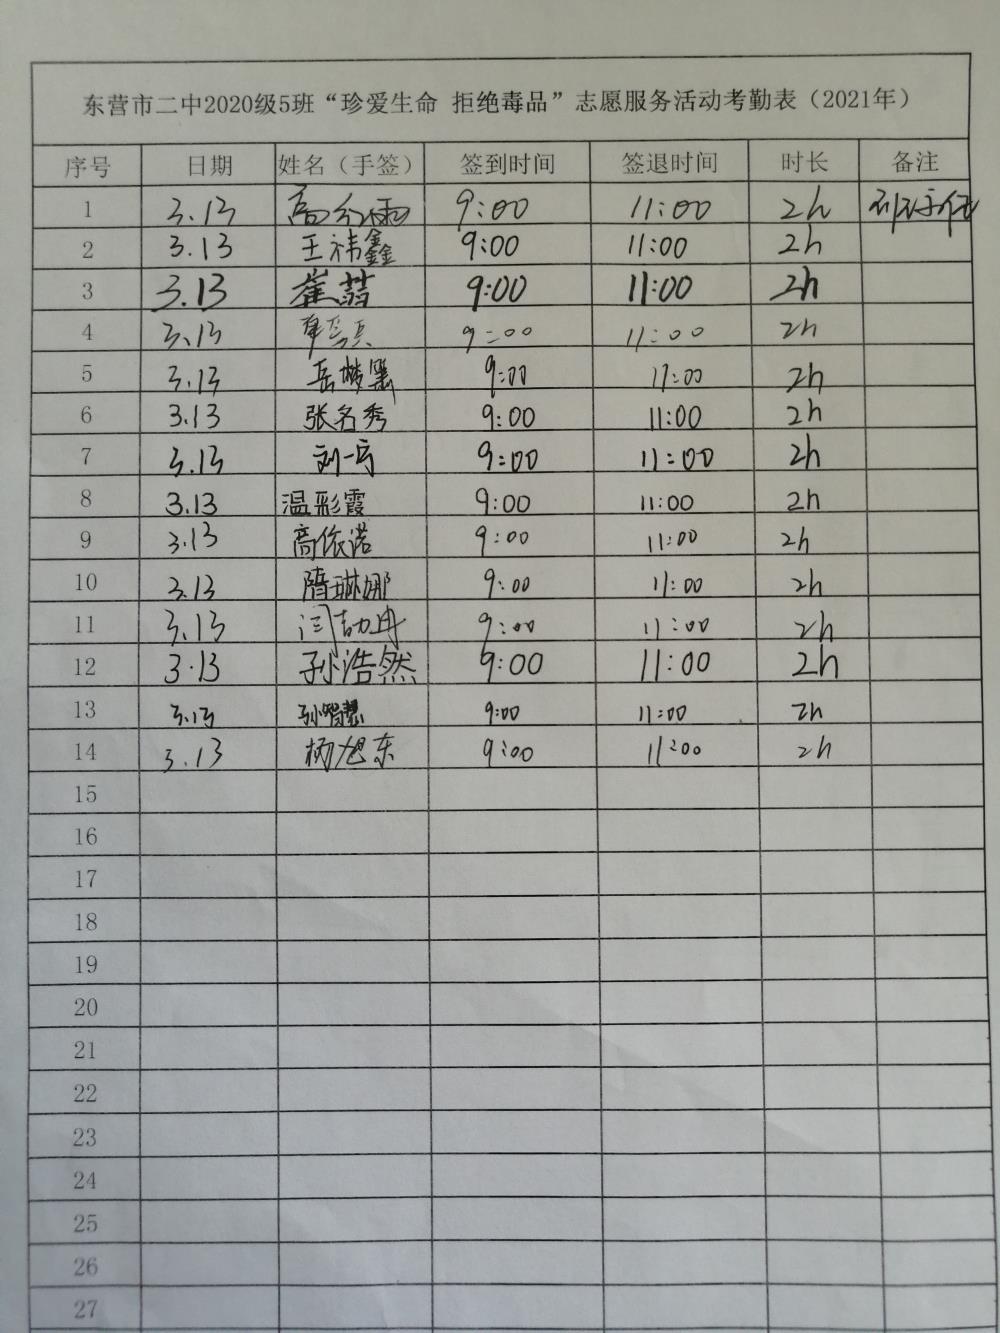 东营市二中2020级5班“珍爱生命 拒绝毒品”志愿服务活动考勤表（2021年）
序号 日期 姓名（手签） 签到时间 签退时间 时长 备注
1 3.13 9:00 11:00 2h
2 3.13 王祎鑫 9:00 11:00 2h
3 3.13 崔翡 9:00 11:00 2h
4 3.13 9:00 11:00 2h
5 3.13 岳 9:00 11:00 2h
6 3.13 张名秀 9:00 11:00 2h
7 3.13 刘一 9:00 11:00 2h
8 3.13 温彩霞 9:00 11:00 2h
9 3.13 高依诺 9:00 11:00 2h
10 3.13 隋琳娜 9:00 11:00 2h
11 3.13 闫 9:00 11:00 2h
12 3.13 孙浩然 9:00 11:00 2h
13 3.13 孙智慧 9:00 11:00 2h
14 3.13 杨旭东 9:00 11:00 2h
15
16
17
18
19
20
21
22
23
24
25
26
27